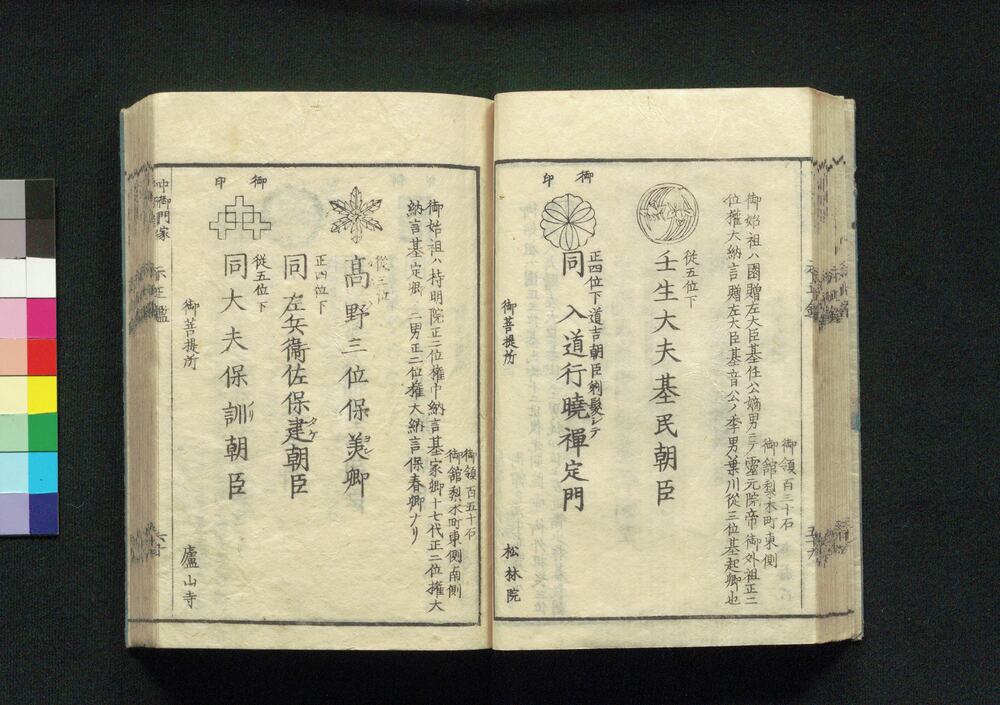 御領百三十石
御館梨木町東側
御始祖ハ園贈左大臣基任公嫡男ニテ霊元院帝御外祖正二
位権大納言贈左大臣基音公ノ季男葉川従三位基起卿也
従五位下
壬生大夫基民朝臣
御印
正四位下道吉朝臣剃髪シテ
同入道行暁禅定門
御菩提所 松林院
御領百五十石
御館梨木町東側南側
御始祖ハ持明院正二位権中納言基家卿十七代正二位権大
納言基定卿二男正二位権大納言保春卿ナリ
従三位
髙野三位保美卿
正四位下
同左兵衛佐保建朝臣
タケ
御印
従五位下
同大夫保訓朝臣
御菩提所 廬山寺
中御門家